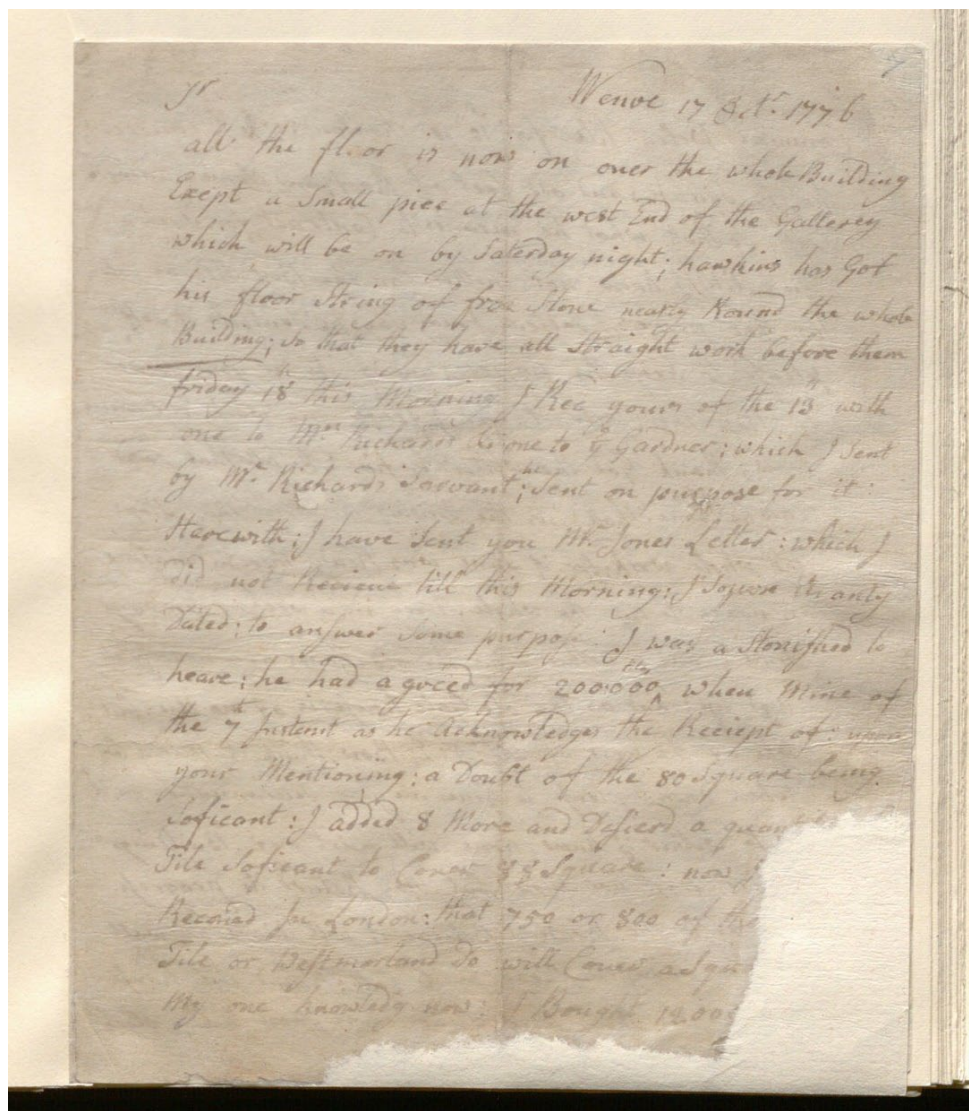 Sr Wenvoe 17 Octr. 1776
all the floor is now on over the whole Building
Exept a Small piece at the west End of the Gallerey
which will be on by Saterday night; hawkins has Got
his floor String of free Stone nearly Round the whole
Building; so that they have all Straight work before them
friday 18th this Morning I Recd yours of the 13th with
one to Mrs Richards & one to ye Gardner; which I Sent
by Mr Richards Sarvant; he Sent on purpose for it:
Harewith; I have Sent you Mr Jones Letter: which I
did not Recieve till this Morning; I Sopose its only
Dated; to answer Some purpose: I was astonished to
heare; he had agreed for 200000, when Mine of
the 7th Instent as he Acknowledges the Reciept of: upon
your Mentioning; a Doubt of the 80 Square being
Soficant: I added 8 More and Desierd a
Tile Soficant to Cover 88 Square: now
in London: that 750 or 800 of the
Tile or Westmorland Do will Cover a
My one knowledg now: I Bought